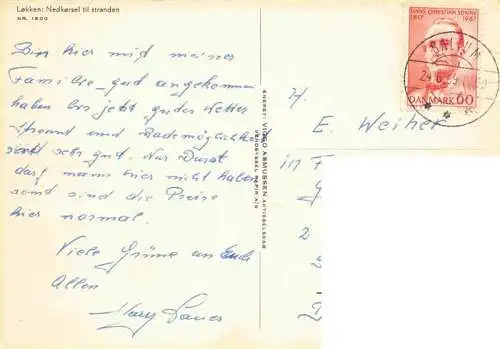 Løkken: Nedkørsel til stranden
NR. 1800
Bin hier mit meiner
Familie gut angekommen
haben bis jetzt gutes Wetter
Strand und Bademöglichkeit
sind sehr gut. Nur Durst
darf mann hier nicht haben
sonst sind die Preise
hier normal.
Viele Grüsse an Euch
Allen
Harry Lauer
ENERET: VIGGO ASMUSSEN AKTIESELSKAB
HANS CHRISTIAN SONNE
1817 1967
DANMARK 60
SALTUM
H.
E. Weiher
in F
2